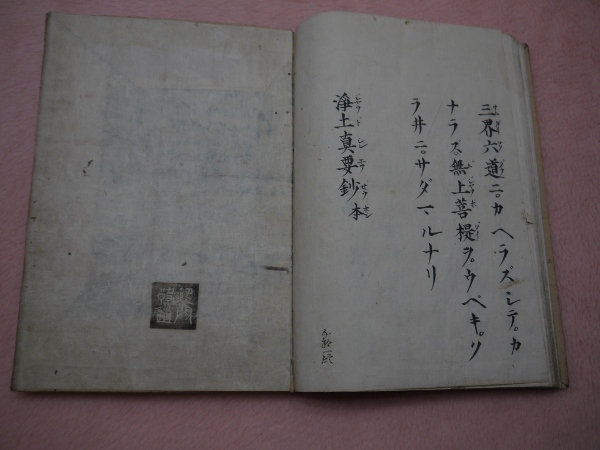 三界六道ニカヘラズシテカ
ナラズ無上菩提ヲウベキリ
ラ井ニサダマルナリ
淨土真要鈔本